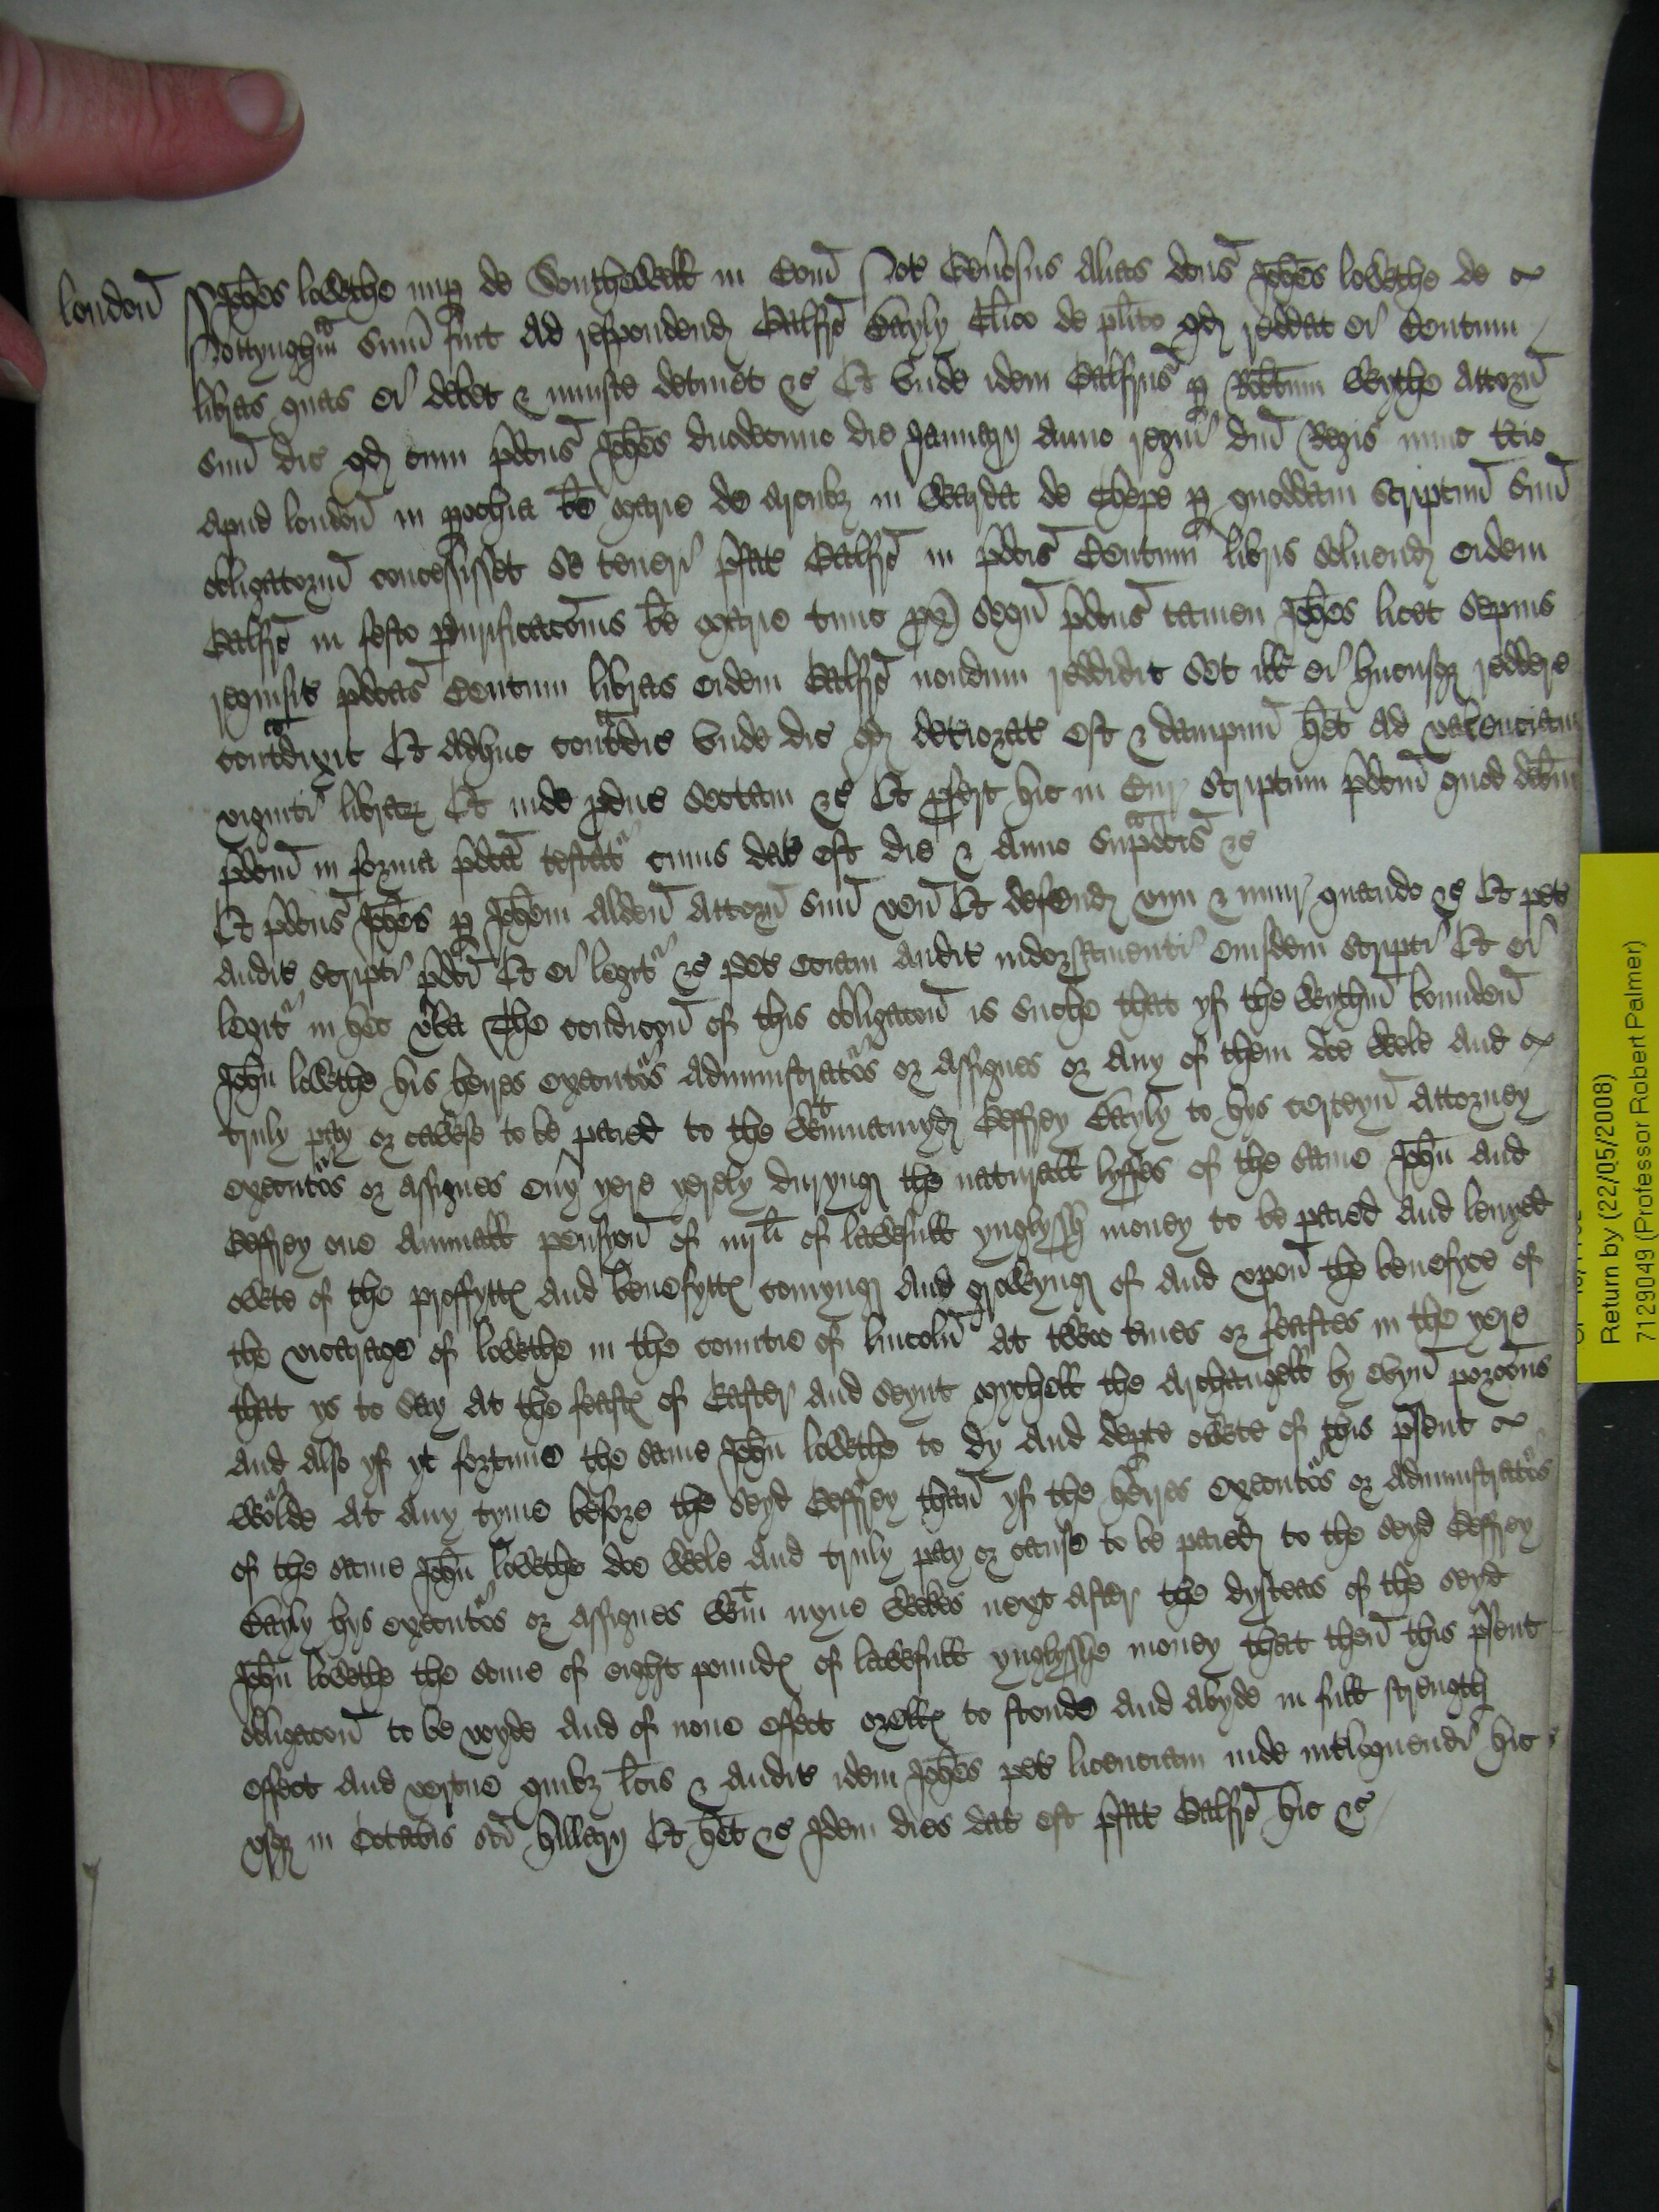 London̄ Joh̄es lowthe nup de Southewell in Com̄ Not Gen̄osus alias dc̄us Joh̄es lowthe de
Nottynghm̄ sum̄ fuit ad respondend Galfr̄o Bayly Cl̄ico de pl̄ito qd reddat ei Centum
libras quas ei debet & iniuste detinet &c Et unde idem Galfrus p Rob̄tum Wythe attorn̄
suū dic qd cum p̄dc̄us Joh̄es duodecimo die Januarij anno regni dn̄i Regis nunc t̄cio
apud london̄ in pochia b̄e marie de arcubz in Warda de Chepe p quoddam scriptum suū
obligatoriū concessisset se teneri p̄fat Galfr̄o in p̄dc̄is Centum libris soluend eidem
Galfr̄o in festo purificac̄onis b̄e marie tunc px̄ sequ p̄dc̄us tamen Joh̄es licet sepius
requisit p̄dc̄as Centum libras eidem Galfr̄o nondum reddidit set ill ei hucusqz reddere
cont̄dixit Et adhuc cont̄dic unde dic qd deteriorat est & dampnū h̄et ad valenciam
viginti librar Et inde pduc sectam &c Et pfert hic in Cur scriptum p̄dc̄m quod deb̄m
p̄dc̄m in forma p̄dc̄a testat cuius dat est die & anno sup̄dc̄is &c
Et p̄dc̄us Joh̄es p Joh̄em Alden̄ attorn̄ suū ven̄ Et defend vim & iniur quando &c Et pet
audit scripti p̄dc̄i Et ei legit &c pet eciam audit indorsamenti eiusdem scripti Et ei
legit in hec v̄ba The condicyon̄ of this obligacon̄ is suche that yf the Wythin̄ bounden̄
Joh̄n lowthe his heyres executors administrators or assignes or any of them doe Wele and
truly pay or cawse to be paied to the Wtinnamyd Geffrey Bayly to hys certeyn̄ attorney
executors or assignes eūy yere yerely duryng the naturall lyffes of the same Joh̄n and
Geffrey one annuall pensyon̄ of iiij li of lawfull ynglyssh money to be paied and leuyed
owte of the proffyttes and benefyttes comyng and growyng of and vpon̄ the benefyce of
the vicarage of lowthe in the comtie of lincoln̄ at twoo tmes or feastes in the yere
that ys to say at the feastes of Easter and seynt mychell the archangell by evyn̄ porcōns
and also yf yt fortune the same Joh̄n lowthe to dy and depte owte of this p̄sent
worlde at any tyme before the seyd Geffrey than̄ yf the heyres executors or administrators
of the same Joh̄n lowthe doe Wele and truly pay or cause to be paied to the seyd Geffrey
Bayly hys executors or assignes Wtin nyne Wekes next after the dysceas of the seyd
Joh̄n lowthe the some of eight poundes of lawfull ynglysshe money that then̄ this p̄sent
obligacon̄ to be voyde and of none effect orelles to stonde and abyde in full strength
effect and vertue quibz l̄cis & audit idem Joh̄es pet licenciam inde int̄loquendi hic
vsqz in Octabis sc̄i hillarij Et h̄et &c Idem dies dat est p̄fat Galfr̄o hic &c
Return by (22/05/2008)
7129049 (Professor Robert Palmer)